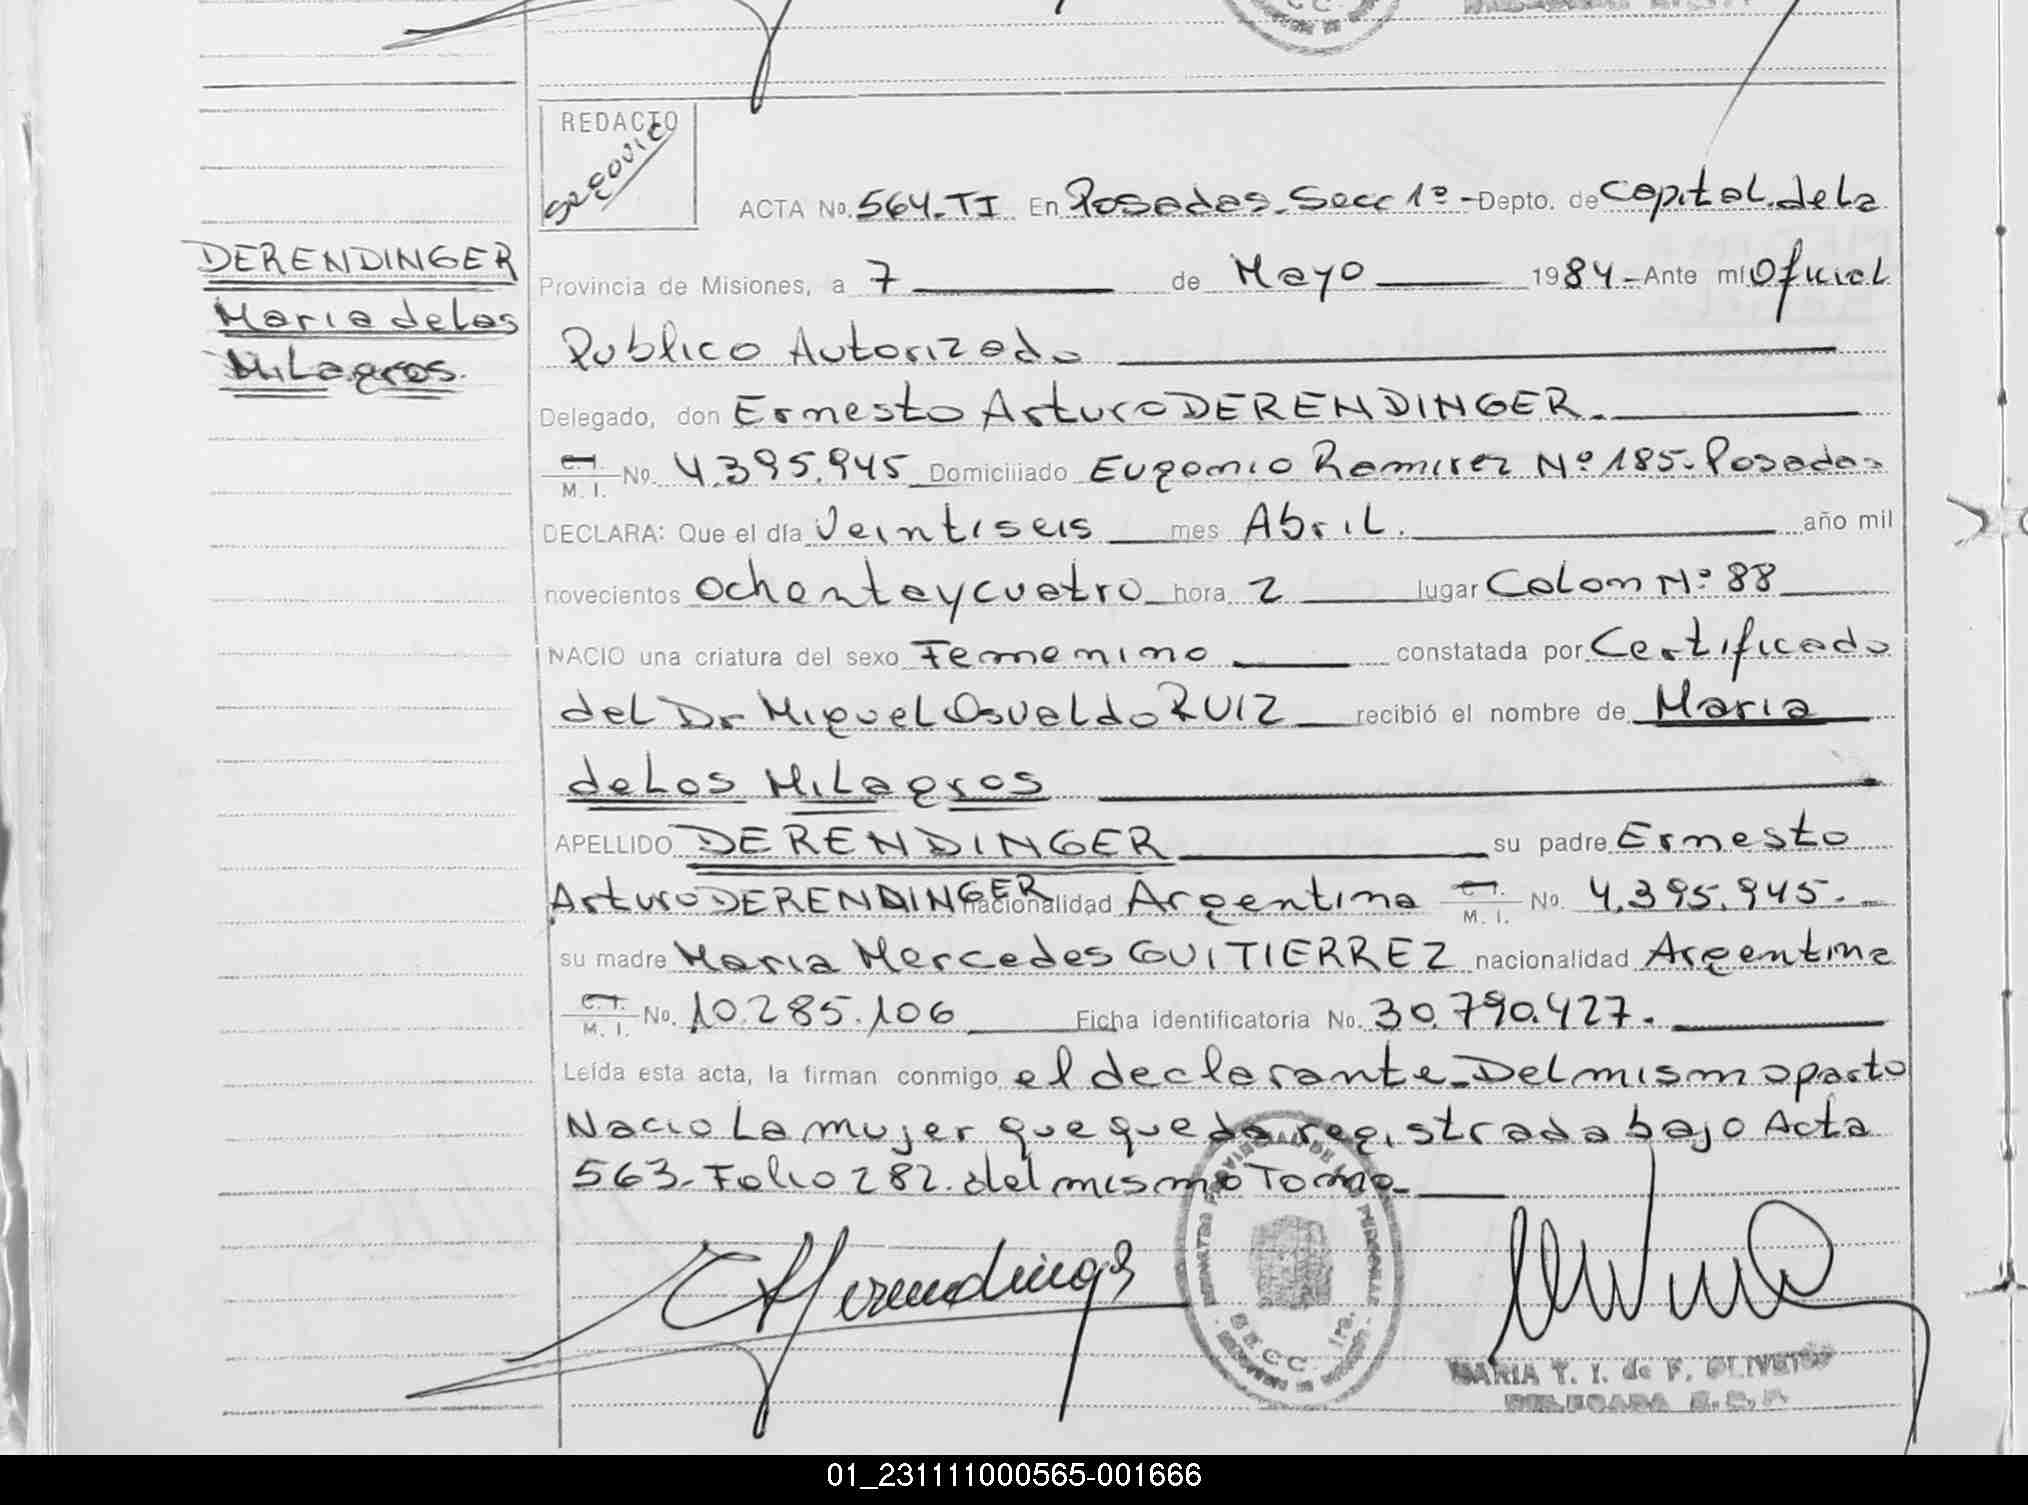 REDACTO
ACTA No. 564-TI En Posadas. Secc 1º - Depto. de Capital. de la
DERENDINGER
Maria de Los
Milagros.
Provincia de Misiones, a 7 de Mayo 1984 - Ante mí Oficial
Publico Autorizado
Delegado, don Ernesto Arturo DERENDINGER.
C.I. M. I. No. 4.395.945 Domiciliado Eugenio Ramirez Nº 185. Posadas
DECLARA: Que el día Veintiseis mes Abril. año mil
novecientos ochenta y cuatro hora 2 lugar Colon Nº 88
NACIO una criatura del sexo Femenino constatada por Certificado
del Dr Miguel Osvaldo RUIZ recibió el nombre de Maria
de Los Milagros
APELLIDO DERENDINGER su padre Ernesto
Arturo DERENDINGER nacionalidad Argentina C.I. M. I. No. 4.395.945.
su madre Maria Mercedes GUITIERREZ nacionalidad Argentina
C.I. M. I. No. 10.285.106 Ficha identificatoria No. 30.790.427.
Leída esta acta, la firman conmigo el declarante. Del mismo parto
Nacio La mujer que queda registrada bajo Acta
563. Folio 282. del mismo Tomo.
MARIA T. I. de F. OLIVETTI
DELEGADA
01_231111000565-001666